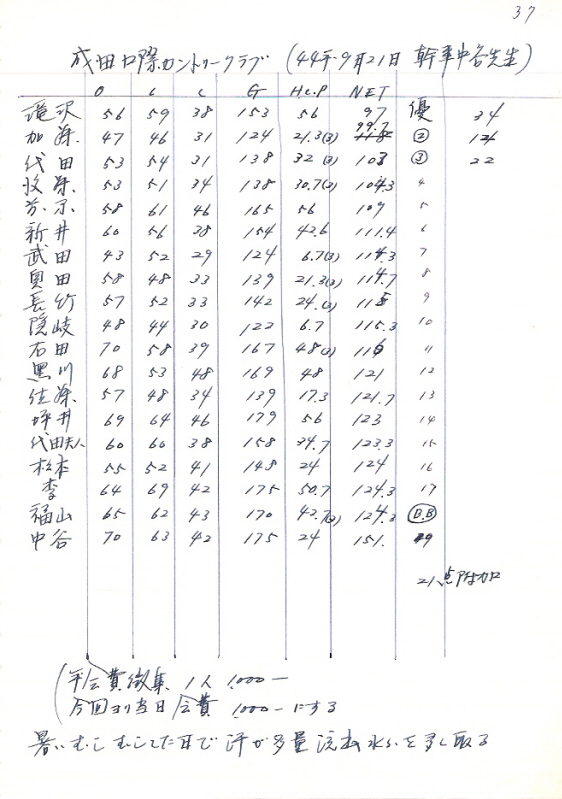 37
成田国際カントリークラブ (44年.9月21日 幹事中谷先生)
O L L G Hc.P NET
滝沢 56 59 38 153 56 97 優 34
加藤 47 46 31 124 21.3(3) 99.7 ② 12
代田 53 54 31 138 32(3) 103 ③ 22
牧茶 53 51 34 138 30.7(3) 104.3 4
58 61 46 165 56 109 5
新井 60 56 38 154 42.6 111.4 6
武田 43 52 29 124 6.7(3) 114.3 7
奥田 58 48 33 139 21.3(3) 114.7 8
長竹 57 52 33 142 24.(3) 115 9
隠岐 48 44 30 122 6.7 115.3 10
石田 70 58 39 167 48(3) 116 11
黒川 68 53 48 169 48 121 12
佐藤 57 48 34 139 17.3 121.7 13
坪井 69 64 46 179 56 123 14
代田夫人 60 60 38 158 34.7 123.3 15
松本 55 52 41 148 24 124 16
李 64 69 42 175 50.7 124.3 17
福山 65 62 43 170 42.7(3) 124.3 B.B
中谷 70 63 42 175 24 151. 19
21点附加
年会費徴集 1人 1,000—
今回ヨリ当日会費 1,000—にする
暑いむしむしした日で汗が多量流出水を多く取る